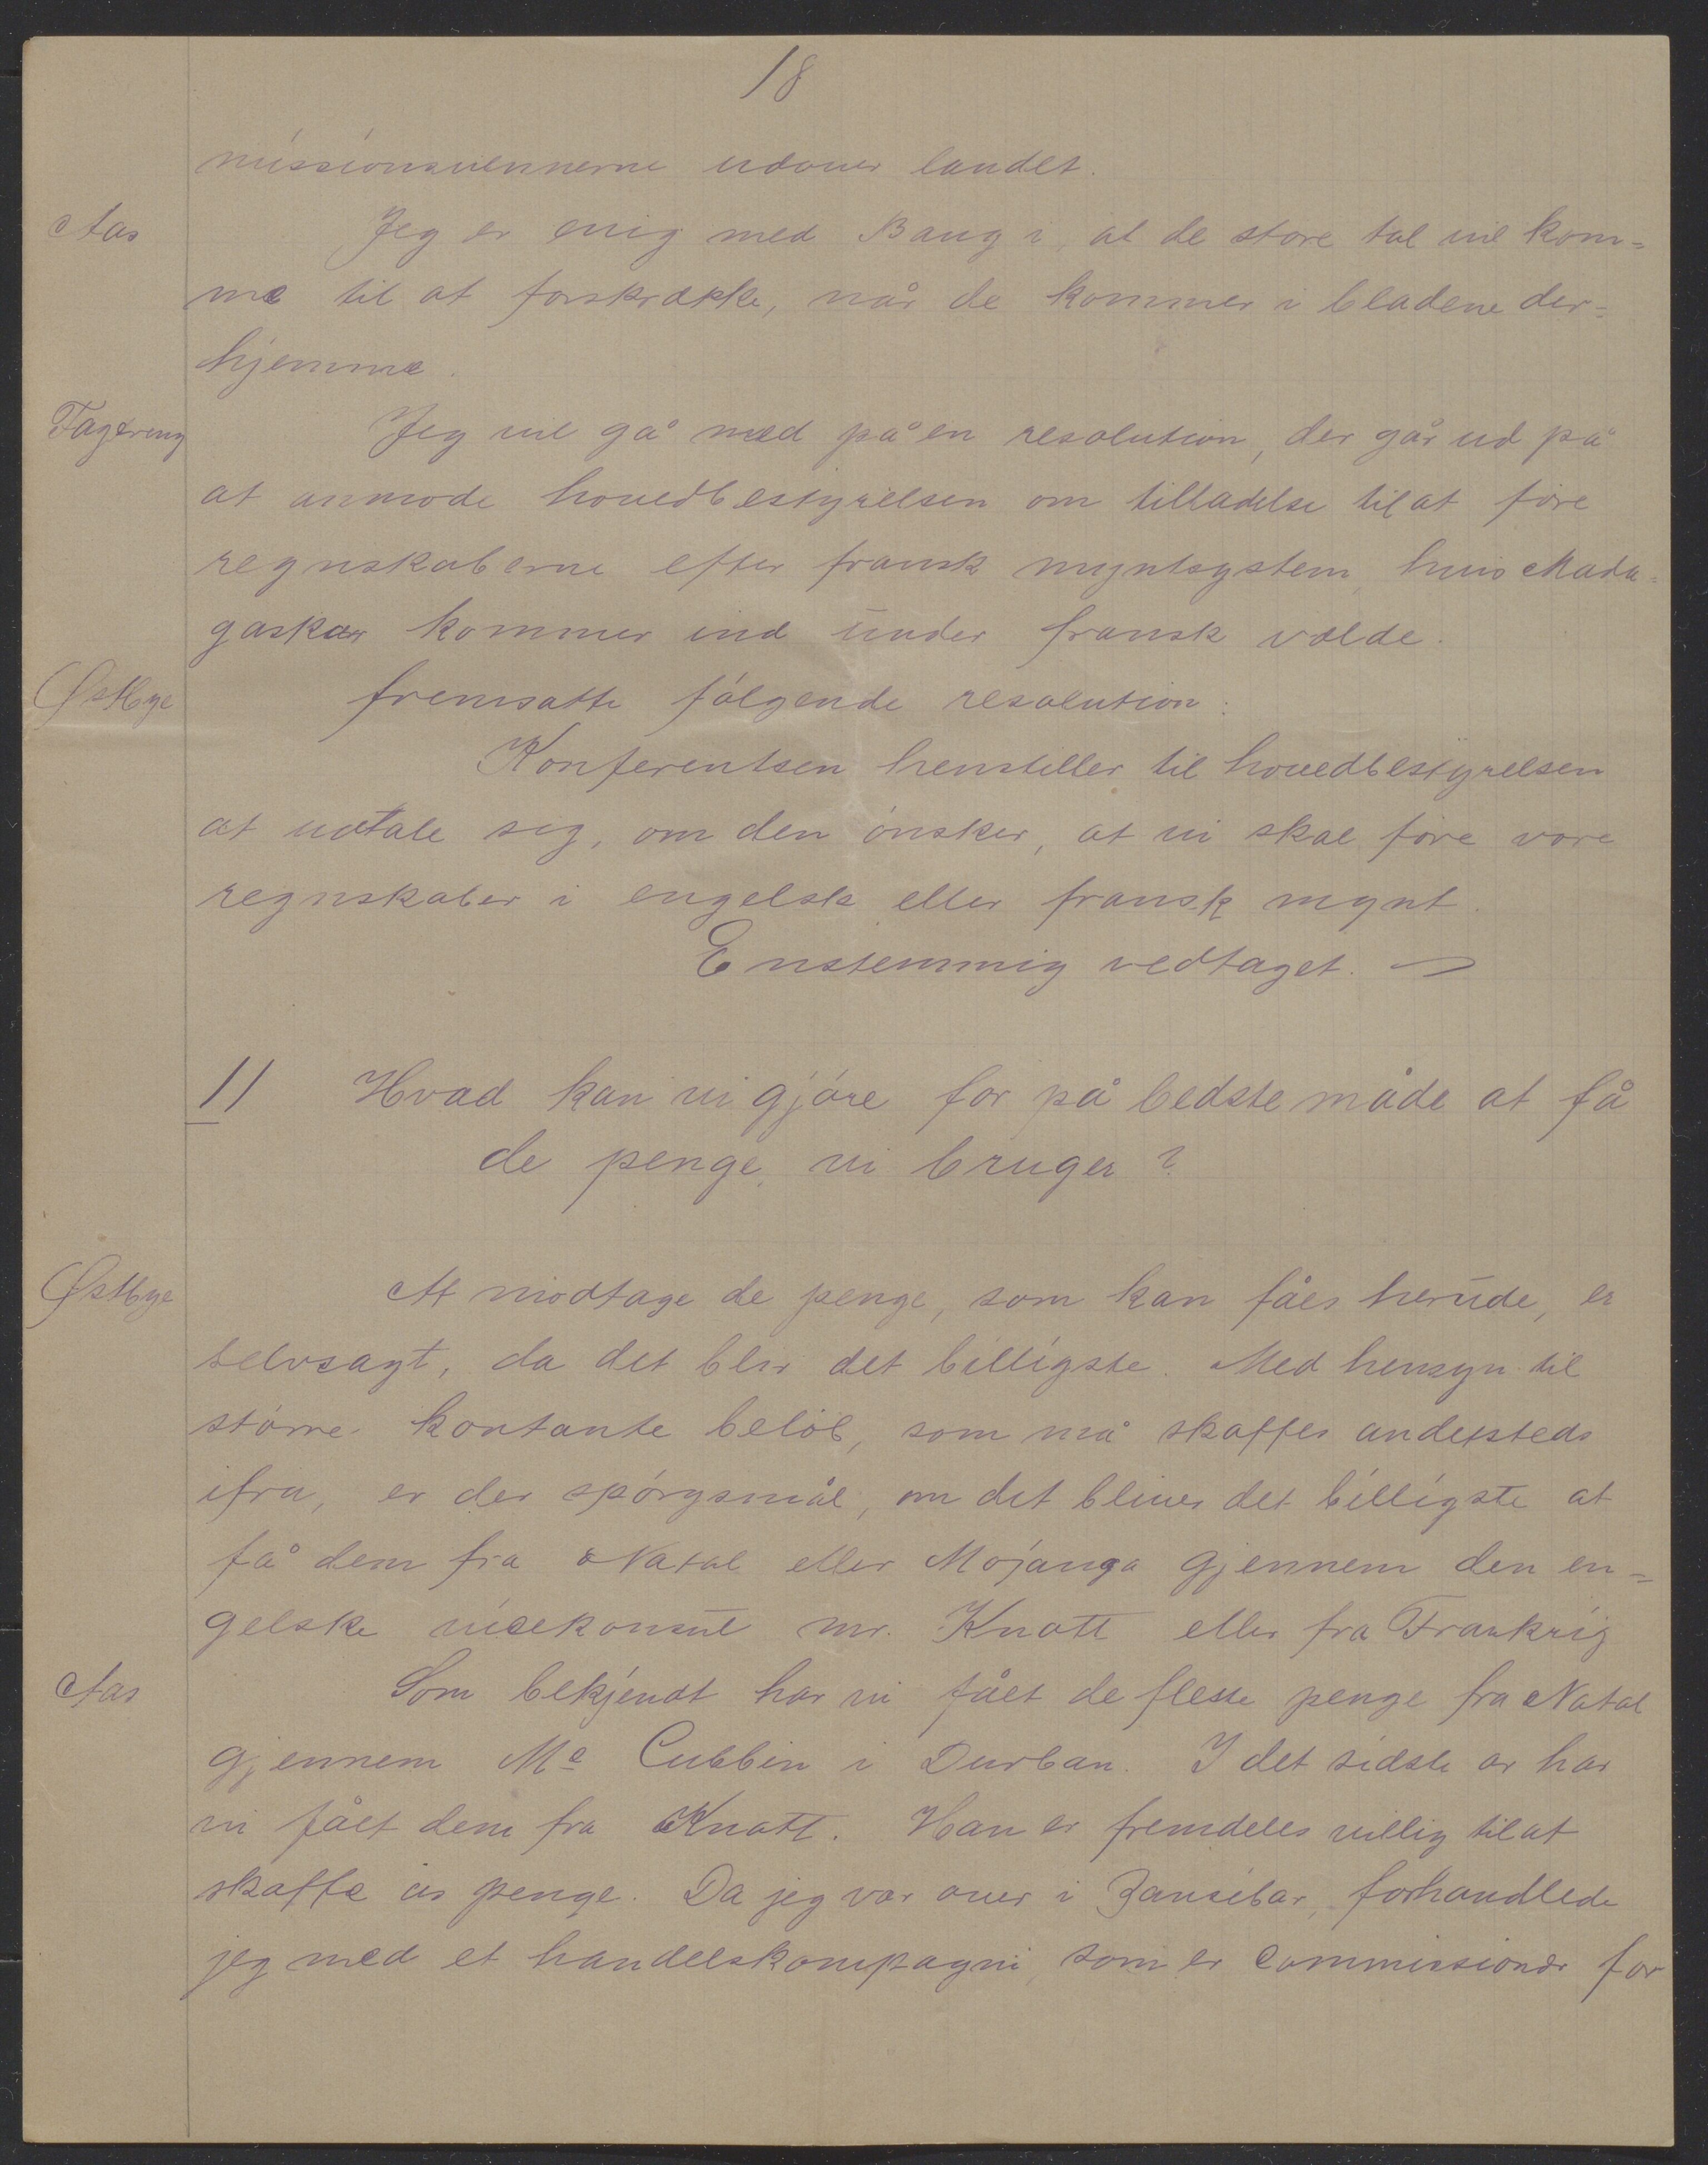 18
missionsvennerne udover landet.
Aas Jeg er enig med Baug i, at de store tal vil kom=
me til at forskrække, når de kommer i bladene der=
hjemme.
Fagereng Jeg vil gå med på en resolution, der går ud på
at anmode hovedbestyrelsen om tilladelse til at føre
regnskaberne efter fransk myntsystem, hvis Mada=
gaskar kommer ind under fransk vælde.
Østbye fremsatte følgende resolution:
Konferentsen henstiller til hovedbestyrelsen
at udtale sig, om den ønsker, at vi skal føre vore
regnskaber i engelsk eller fransk mynt.
Enstemmig vedtaget.
11 Hvad kan vi gjøre for på bedste måde at få
de penge, vi bruger?
Østbye At modtage de penge, som kan fåes herude, er
selvsagt, da det blir det billigste. Med hensyn til
større kontante beløb, som må skaffes andetsteds
ifra, er der spørgsmål, om det bliver det billigste at
få dem fra Natal eller Mojanga gjennem den en=
gelske vicekonsul mr. Knott eller fra Frankrig
Aas Som bekjendt har vi fået de fleste penge fra Natal
gjennem Mc Cubbin i Durban. I det sidste år har
vi fået dem fra Knott. Han er fremdeles villig til at
skaffe os penge. Da jeg var over i Zansibar, forhandlede
jeg med et handelskompagni, som er commissionær for